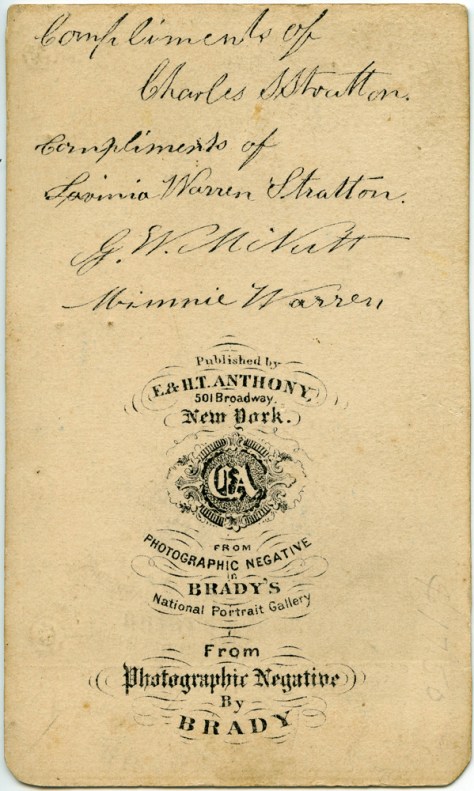 Compliments of
Charles S Stratton.
Compliments of
Lavinia Warren Stratton.
G. W. M. Nutt
Minnie Warren
Published by
E. & H.T. ANTHONY,
501 Broadway.
New York.
E&A
FROM
PHOTOGRAPHIC NEGATIVE
in
BRADY'S
National Portrait Gallery
From
Photographic Negative
By
BRADY